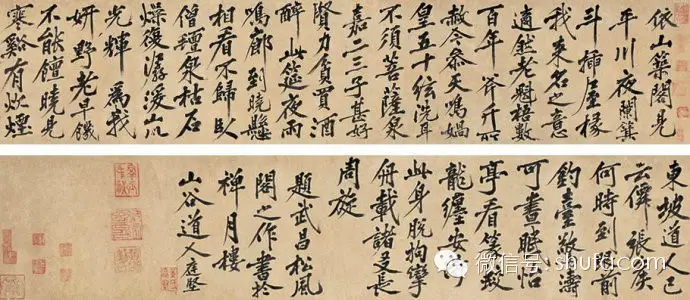 依山築閣見
平川夜闌箕
斗插屋椽
我來名之意
適然老魁梧數
百年斧斤所
赦令參天鳴媧
皇五十弦洗耳
不須菩薩泉
嘉二三子甚好
賢力貧買酒
醉此筵夜雨
鳴廊到曉懸
相看不歸臥
僧氈泉枯石
燥復潺湲山川
光輝為我
妍野老早饑
不能饘曉見
寒谿有炊煙
東坡道人已
去僊張侯
何時到前
釣臺驚濤
可晝眠怡
亭看篆蛟
龍纏安得
此身脫拘攣
舟載諸友長
周旋
題武昌松風
閣之作書於
禪月樓
山谷道人庭堅
微信号: shufd.com